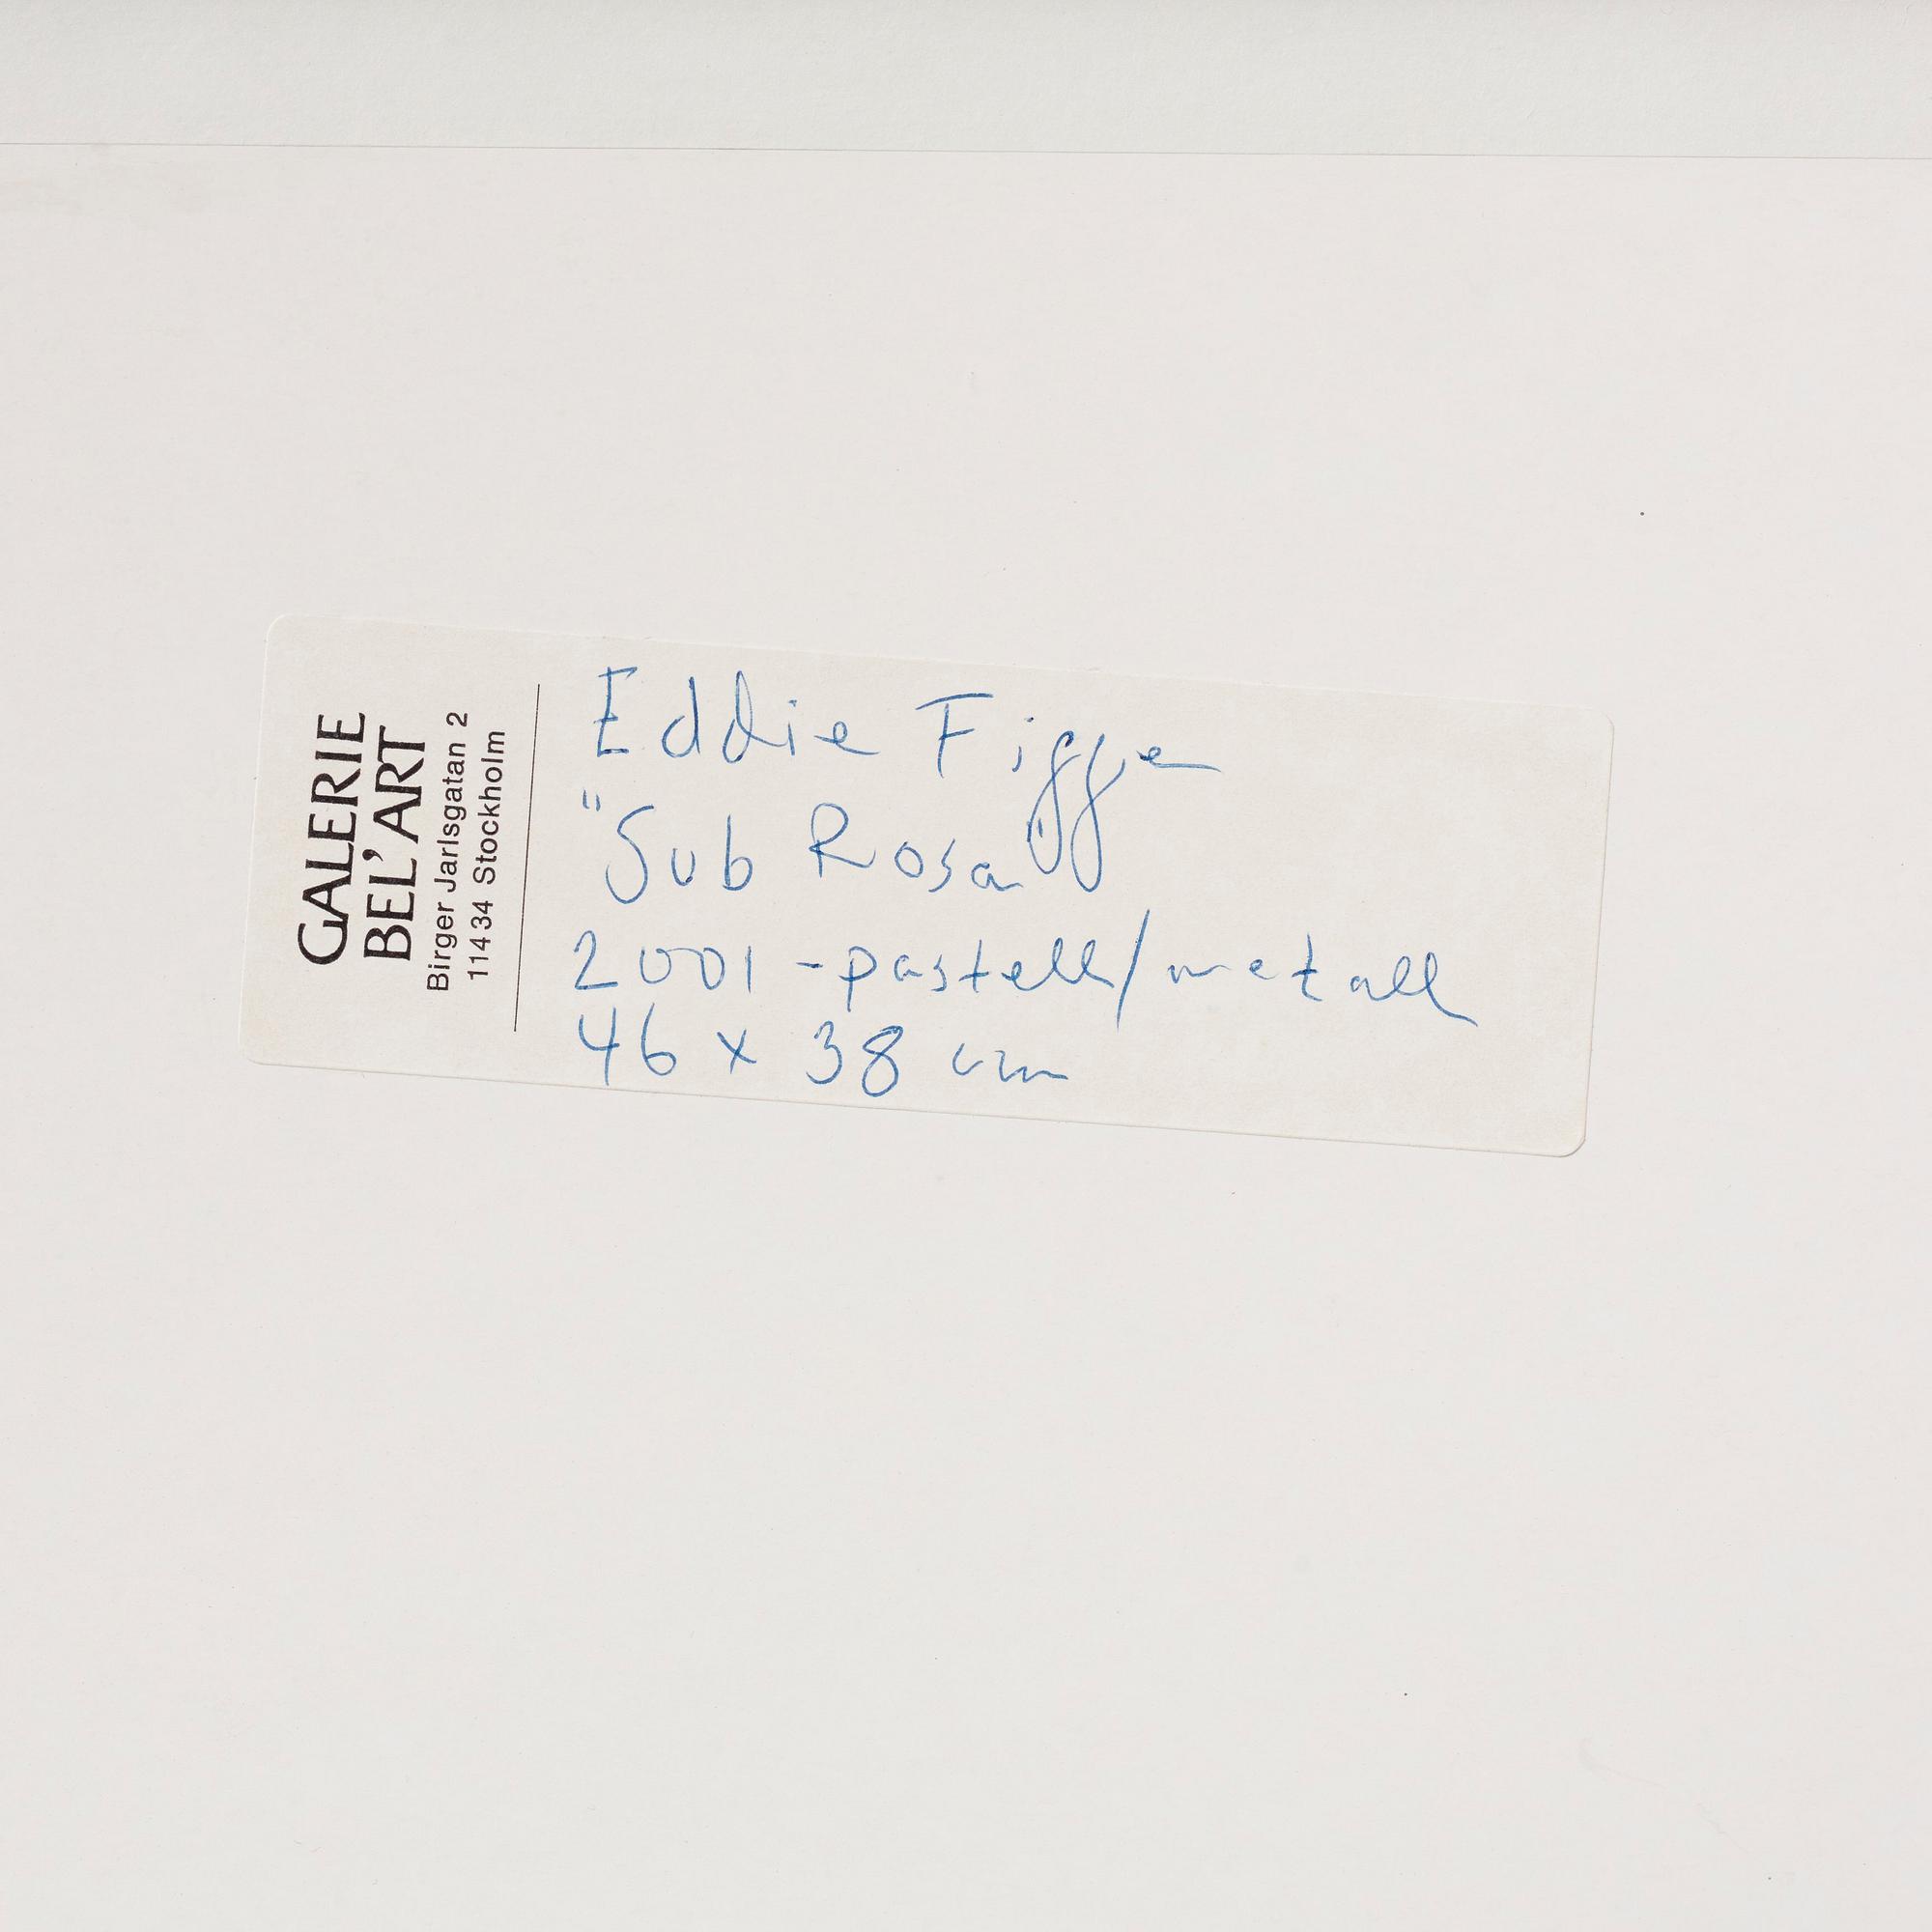 GALERIE
BEL'ART
Birger Jarlsgatan 2
11434 Stockholm
Eddie Figge
"Sub Rosa"
2001 - pastell/metall
46 x 38 cm